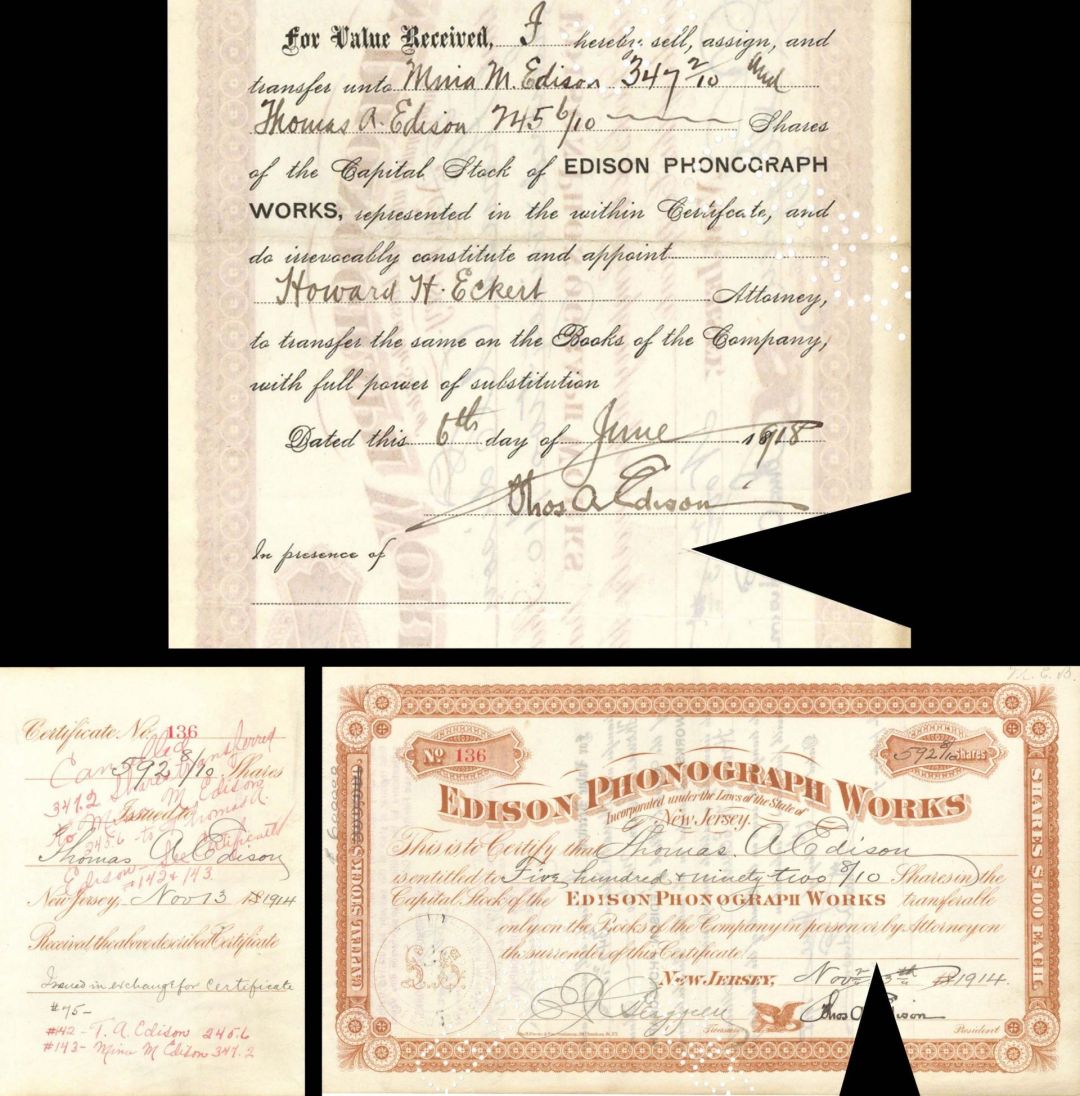 For Value Received, I hereby sell, assign, and
transfer unto Mina M. Edison 347 2/10 and
Thomas A. Edison 245 6/10 Shares
of the Capital Stock of EDISON PHONOGRAPH
WORKS, represented in the within Certifcate, and
do irrevocably constitute and appoint
Howard H. Eckert Attorney,
to transfer the same on the Books of the Company,
with full power of substitution
Dated this 6th day of June 1918
Thos A Edison
In presence of
Certificate No. 136
592 8/10 Shares
Cancelled
Transferred
347.2 Shares
to M. M. Edison
245.6 to Thomas A.
Edison See Certificate
#142 & 143
Issued to
Thomas A. Edison
New Jersey, Nov 13 1914
Received the above described Certificate
Issued in exchange for Certificate
#75-
#142- T. A. Edison 245.6
#143- Mina M Edison 347.2
No 136
592 8/10 Shares
EDISON PHONOGRAPH WORKS
Incorporated under the Laws of the State of
New Jersey.
This is to Certify that Thomas A Edison
is entitled to Five hundred & ninety two 8/10 Shares in the
Capital Stock of the EDISON PHONOGRAPH WORKS transferable
only on the Books of the Company in person or by Attorney on
the surrender of this Certificate.
NEW JERSEY, Nov 1914.
Treasurer
Thos A Edison
President
CAPITAL STOCK $
SHARES $100 EACH